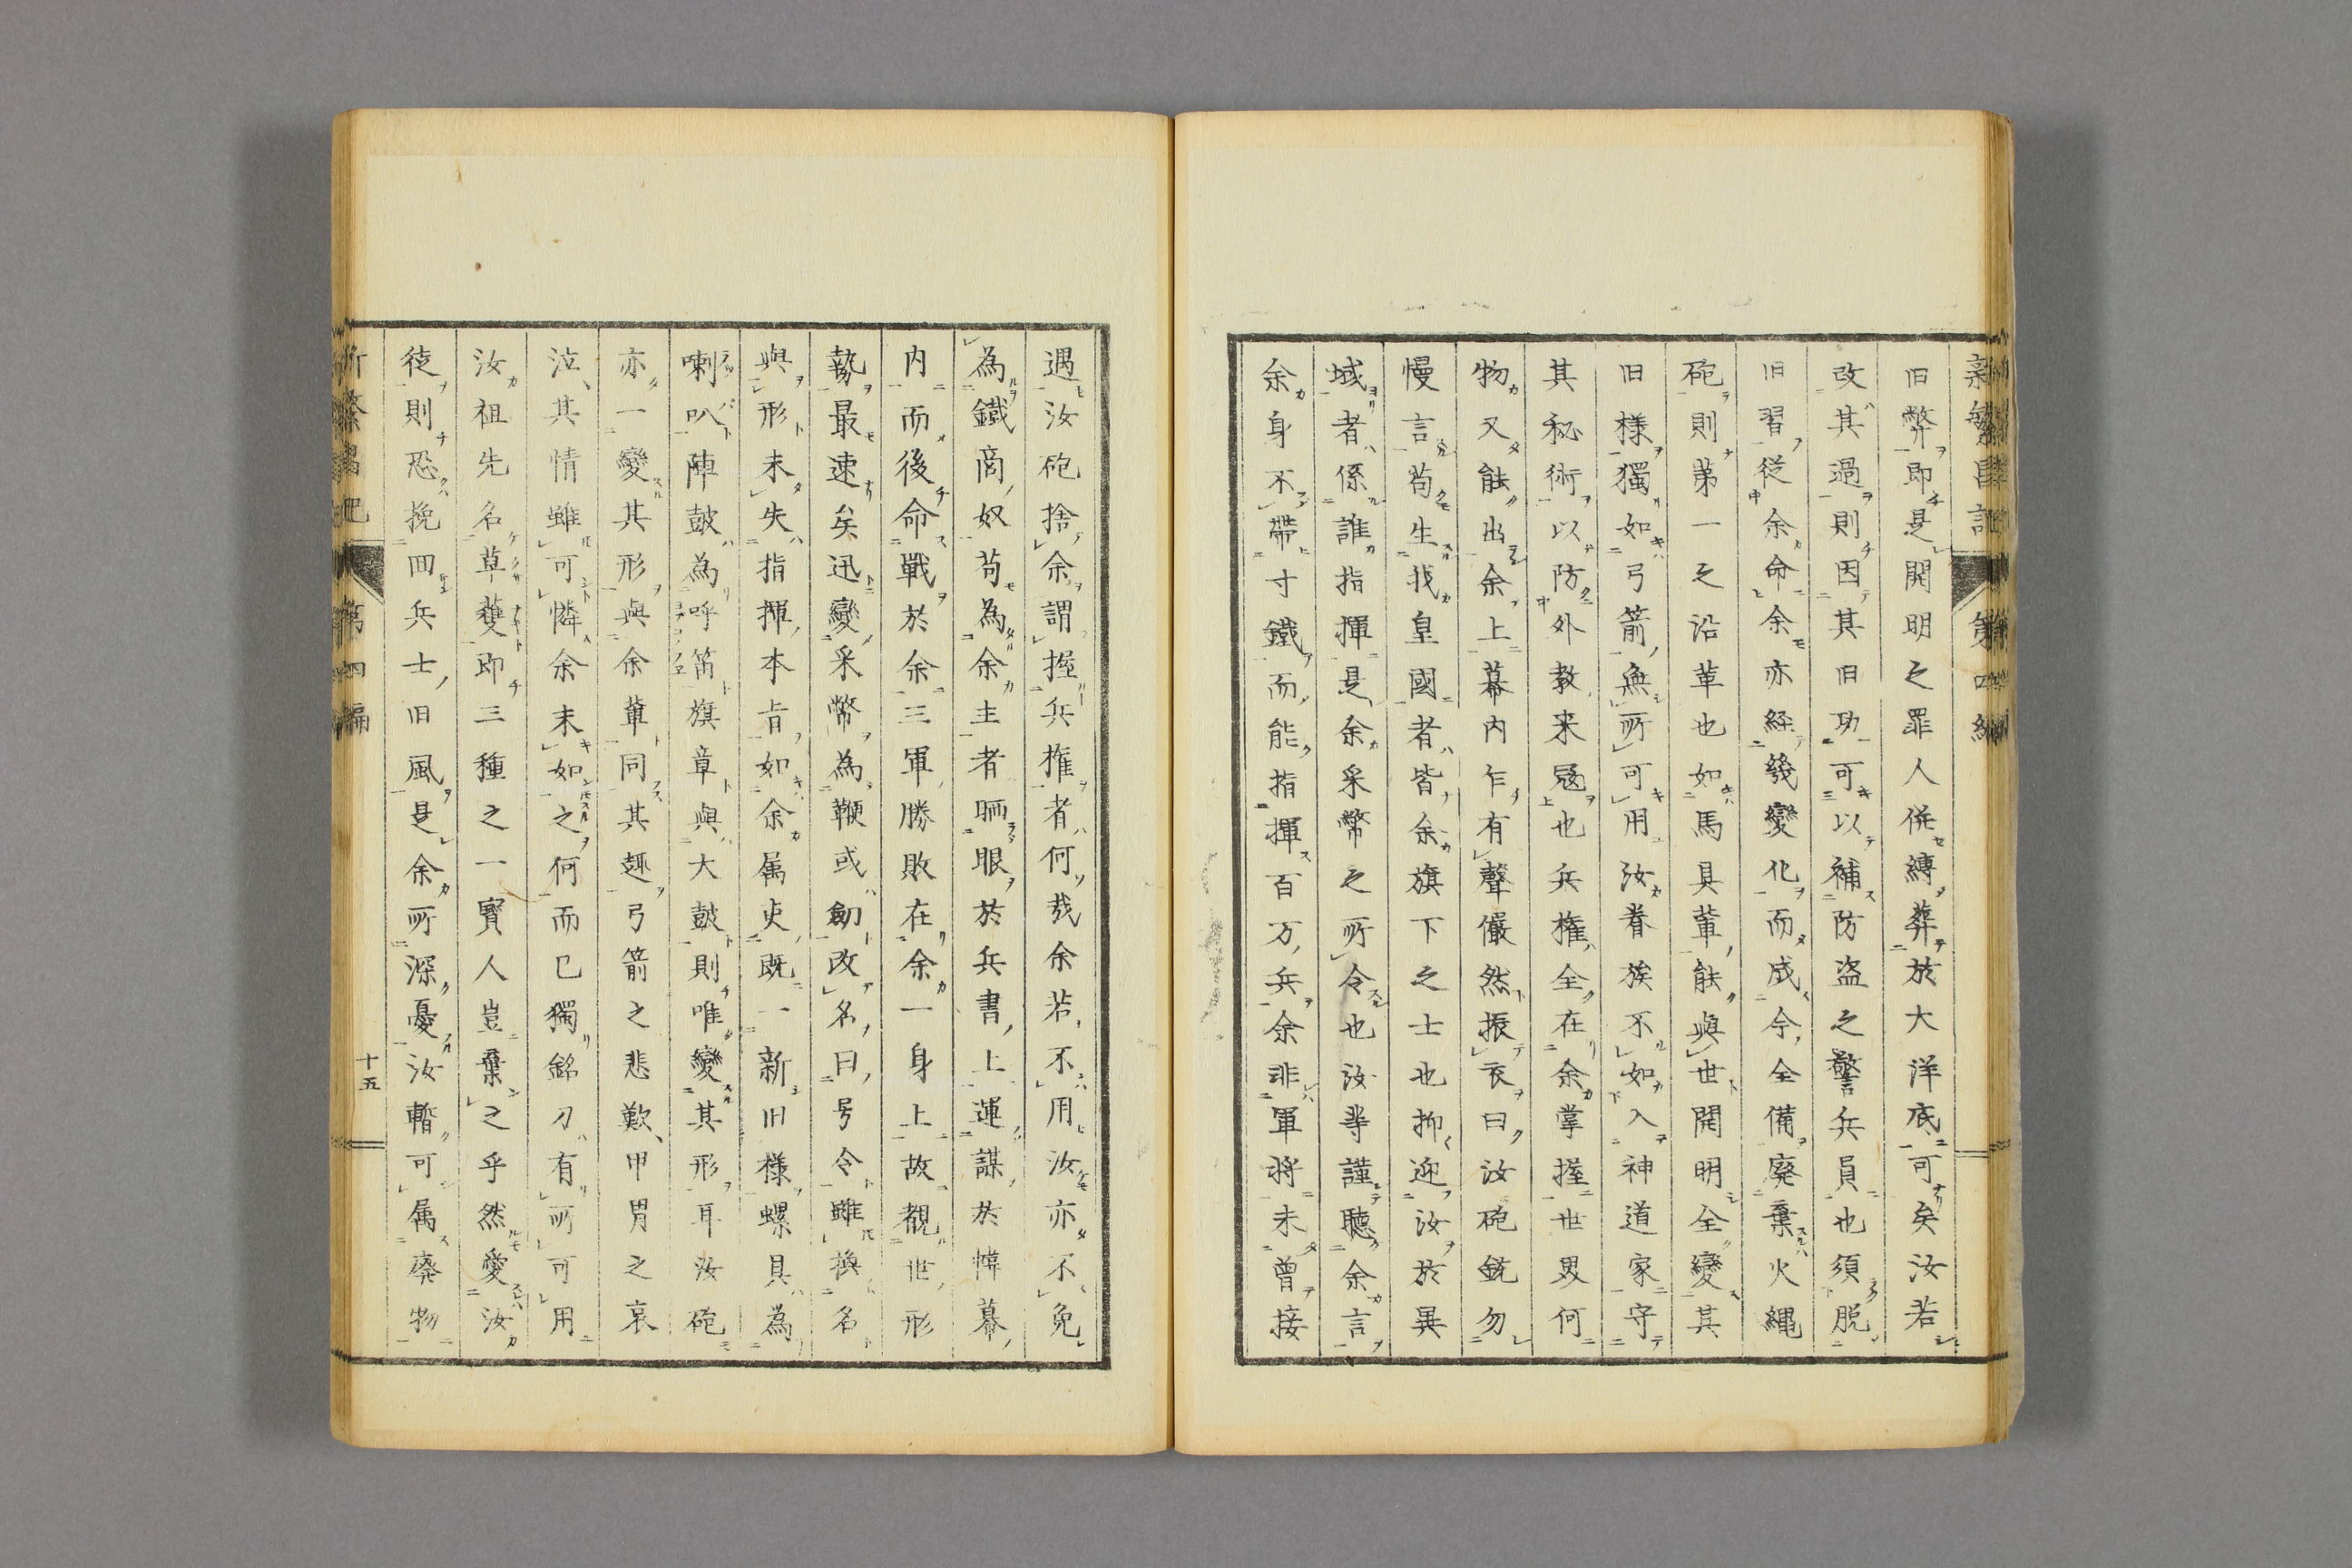 新繁昌記 第四編
旧弊即是開明之罪人併縛葬於大洋底可矣汝若
改其過則因其旧功可以補防盗之警兵員也須脱
旧習従余命余亦経幾變化而成今全備廃棄火縄
砲則第一之沿革也如馬具輩能與世開明全變其
旧様獨如弓箭無所可用汝眷族不如入神道家守
其秘術以防外教来寇也兵權全在余掌握世界何
物又能出余上幕内乍有聲儼然振衣曰汝砲銃勿
慢言苟生我皇國者皆余旗下之士也抑迎汝於異
域者係誰指揮是余采幣之所令也汝等謹聽余言
余身不帶寸鐵而能指揮百万兵余非軍将未曾接
遇汝砲捨余謂握兵權者何哉余若不用汝亦不免
為鐵商奴苟為余主者晒眼於兵書上運謀於幃幕
内而後命戰於余三軍勝敗在余一身上故観世形
勢最速矣迅變采幣為鞭或劒改名曰号令雖換名
與形未失指揮本旨如余属吏既一新旧様螺具為
喇叭陣鼓為呼笛旗章與大鼓則唯變其形耳汝砲
亦一變其形與余輩同其趣弓箭之悲歎甲冑之哀
泣其情雖可憐余末如之何而已獨銘刀有所可用
汝祖先名草薙即三種之一寳人豈棄之乎然愛汝
徒則恐挽回兵士旧風是余所深憂汝暫可属廃物
新繁昌記 第四編 十五